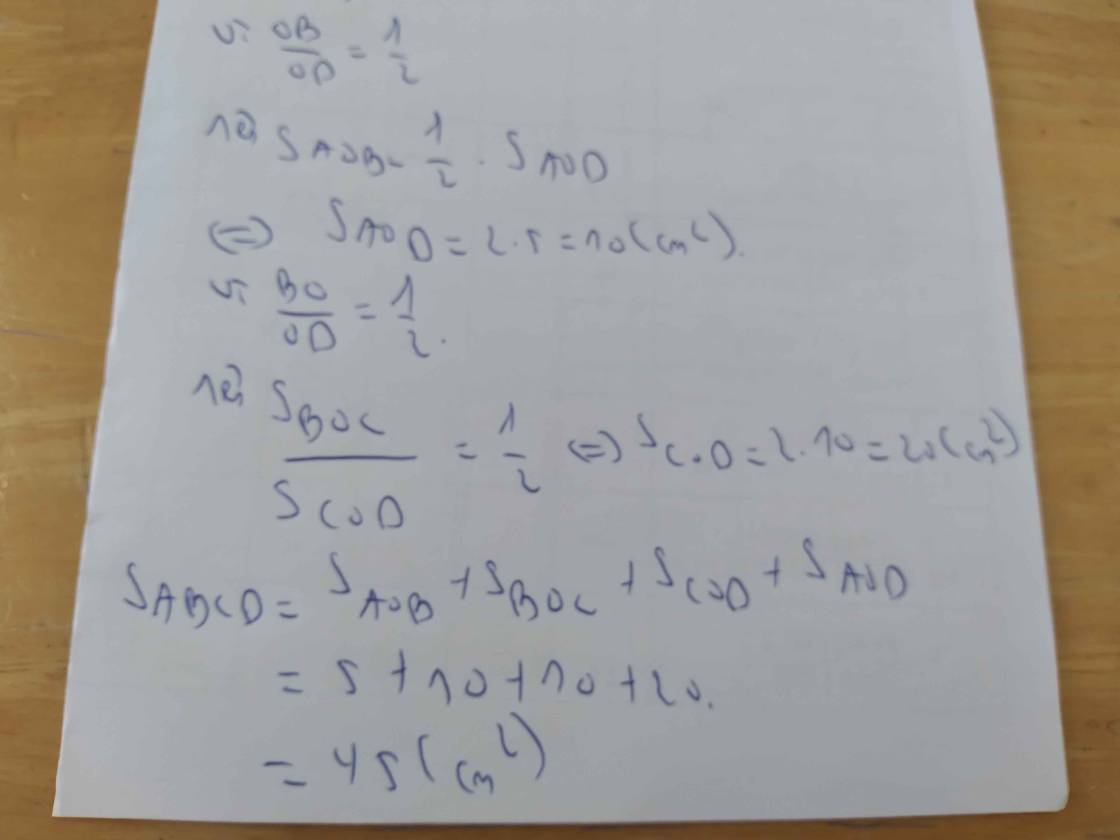 Vì OB/OD = 1/2
nên S AOB = 1/2 . S AOD
<=> S AOD = 2.5 = 10 (cm²).
Vì BO/OD = 1/2.
nên S BOC / S COD = 1/2 <=> S COD = 2.10 = 20 (cm²)
S ABCD = S AOB + S BOC + S COD + S AOD
= 5 + 10 + 10 + 20.
= 45 (cm²)